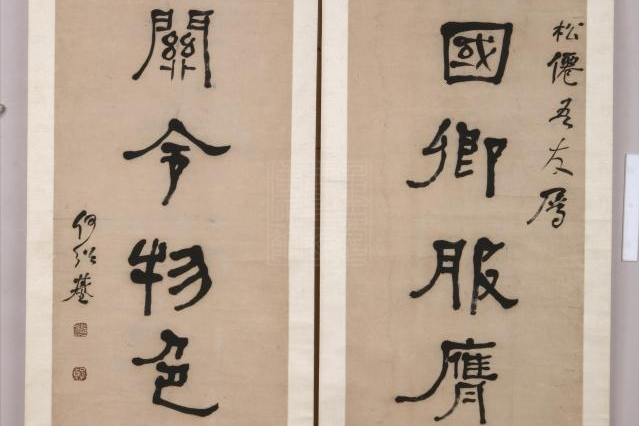 松僊吾友属
國卿服膺
關令物色
何紹基